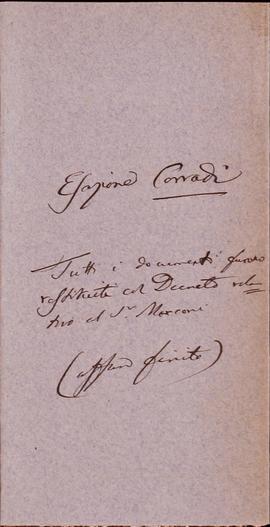 Esazione Corradi
Tutti i documenti furono
restituiti col Decreto rela=
tivo al Sr. Marconi
(affar finito)